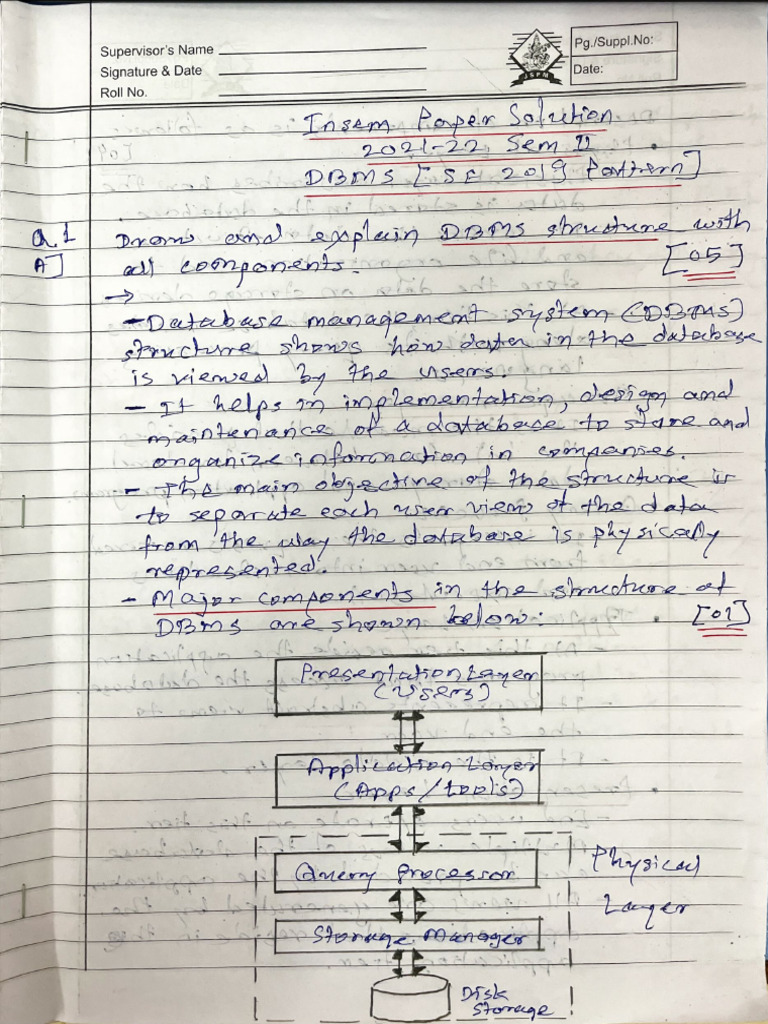 Supervisor's Name
Signature & Date
Roll No.
JSPM
Pg./Suppl.No:
Date:
Insem Paper Solution
2021-22 Sem II
DBMS [SE 2019 Pattern]
Q.1 Draw and explain DBMS structure with
A] all components. [05]
→
- Database management system (DBMS)
structure shows how data in the database
is viewed by the users.
- It helps in implementation, design and
maintenance of a database to store and
organize information in companies.
- The main objective of the structure is
to separate each user view of the data
from the way the database is physically
represented.
- Major components in the structure of
DBMS are shown below: [01]
Presentation Layer
(Users)
Application Layer
(Apps/tools)
Query Processor
Physical
Layer
Storage Manager
Disk
Storage